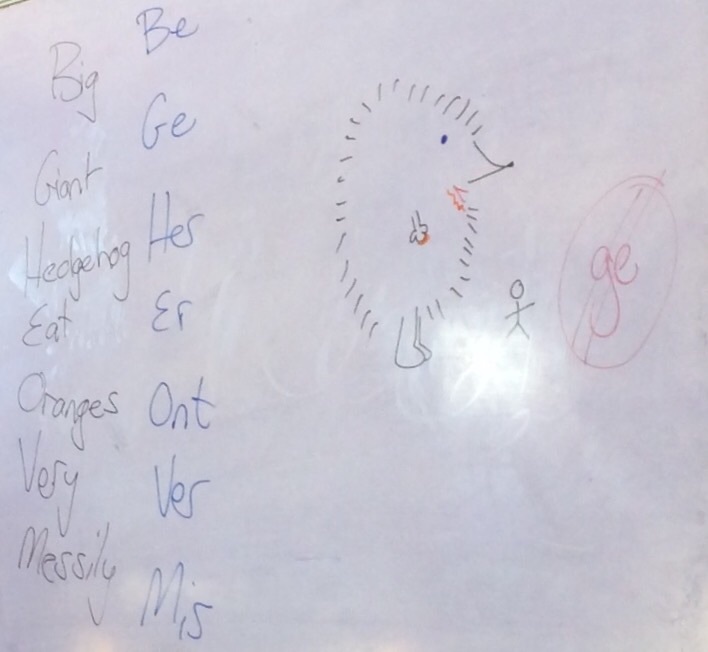 Big Be
Giant Ge
Hedgehog Her
Eat Er
Oranges Ont
Very Ver
Messily Mis
ge